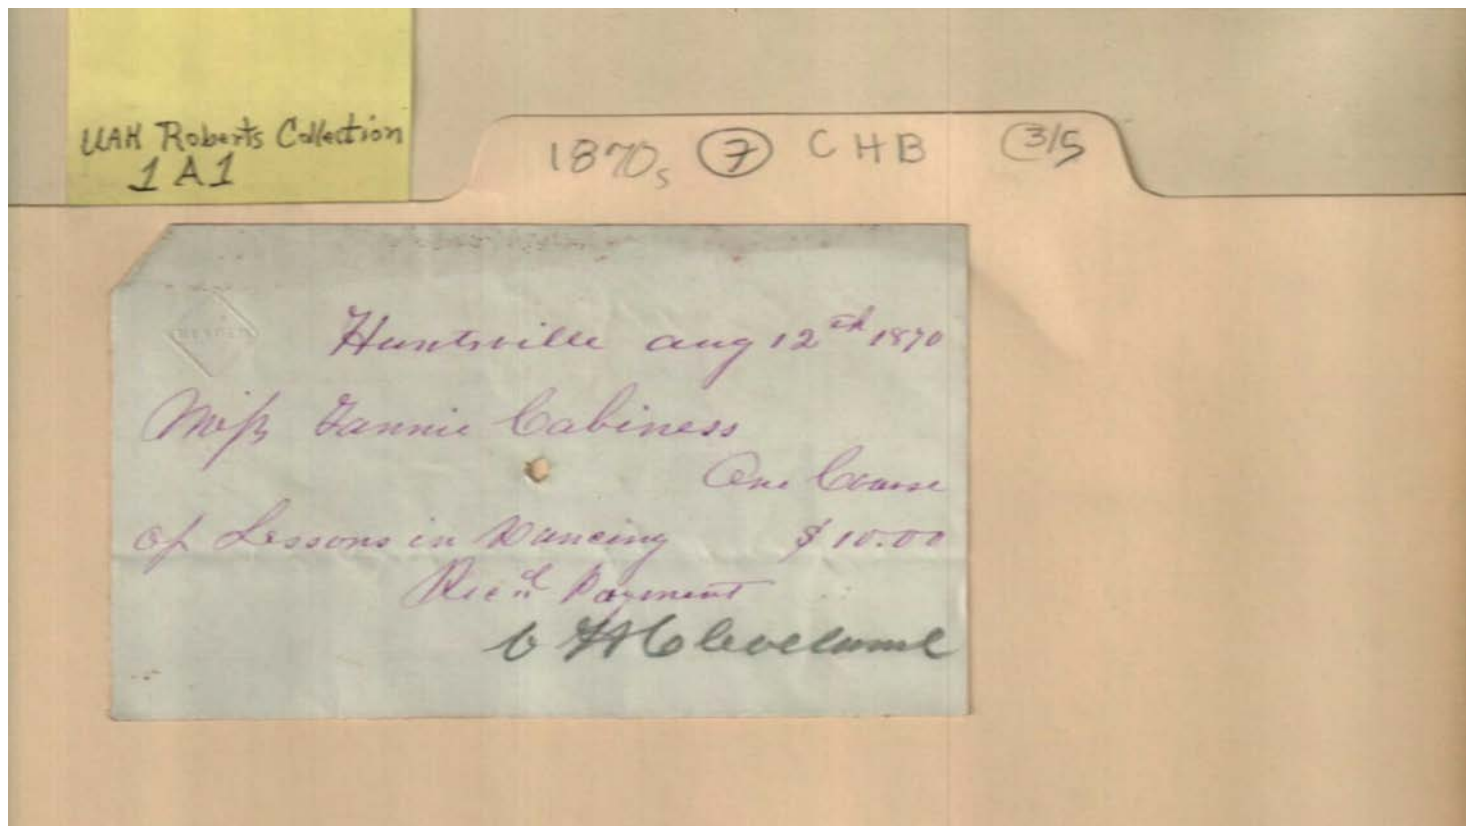 UAH Roberts Collection
1A1
1870s 7 CHB 3/5
Huntsville aug 12th 1870
Miss Fannie Cabiness
One Course
of Lessons in Dancing $10.00
Rec'd Payment
Cleveland